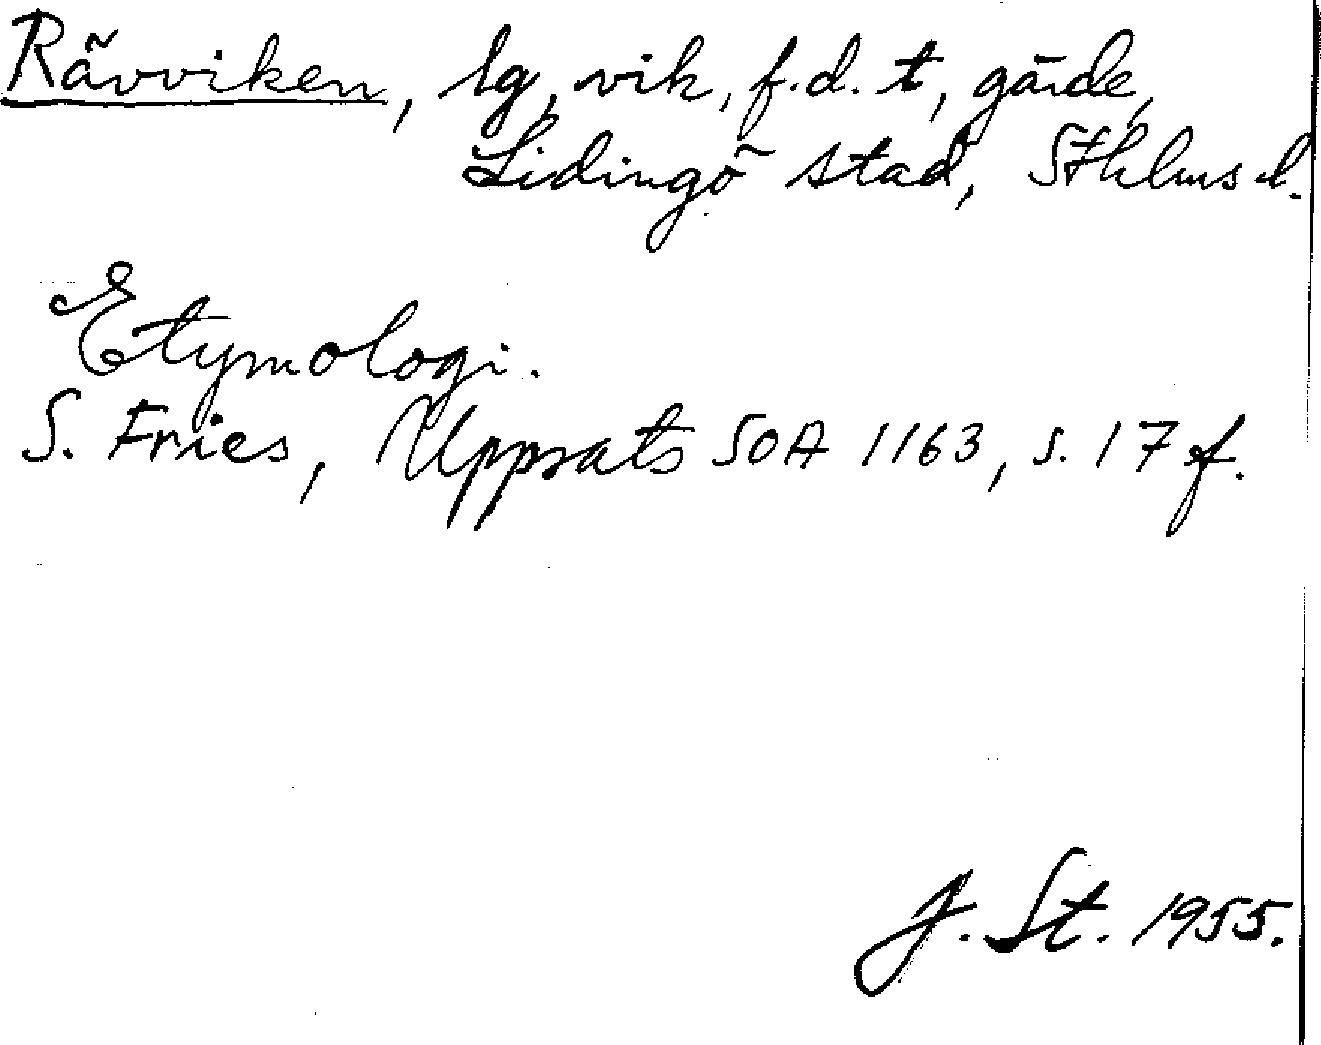 Rävviken, lg, vik, f.d. t, gärde,
Lidingö stad, Sthlms l.
Etymologi.
S. Fries, Uppsats SOA 1163, s. 17 f.
J. St. 1955.